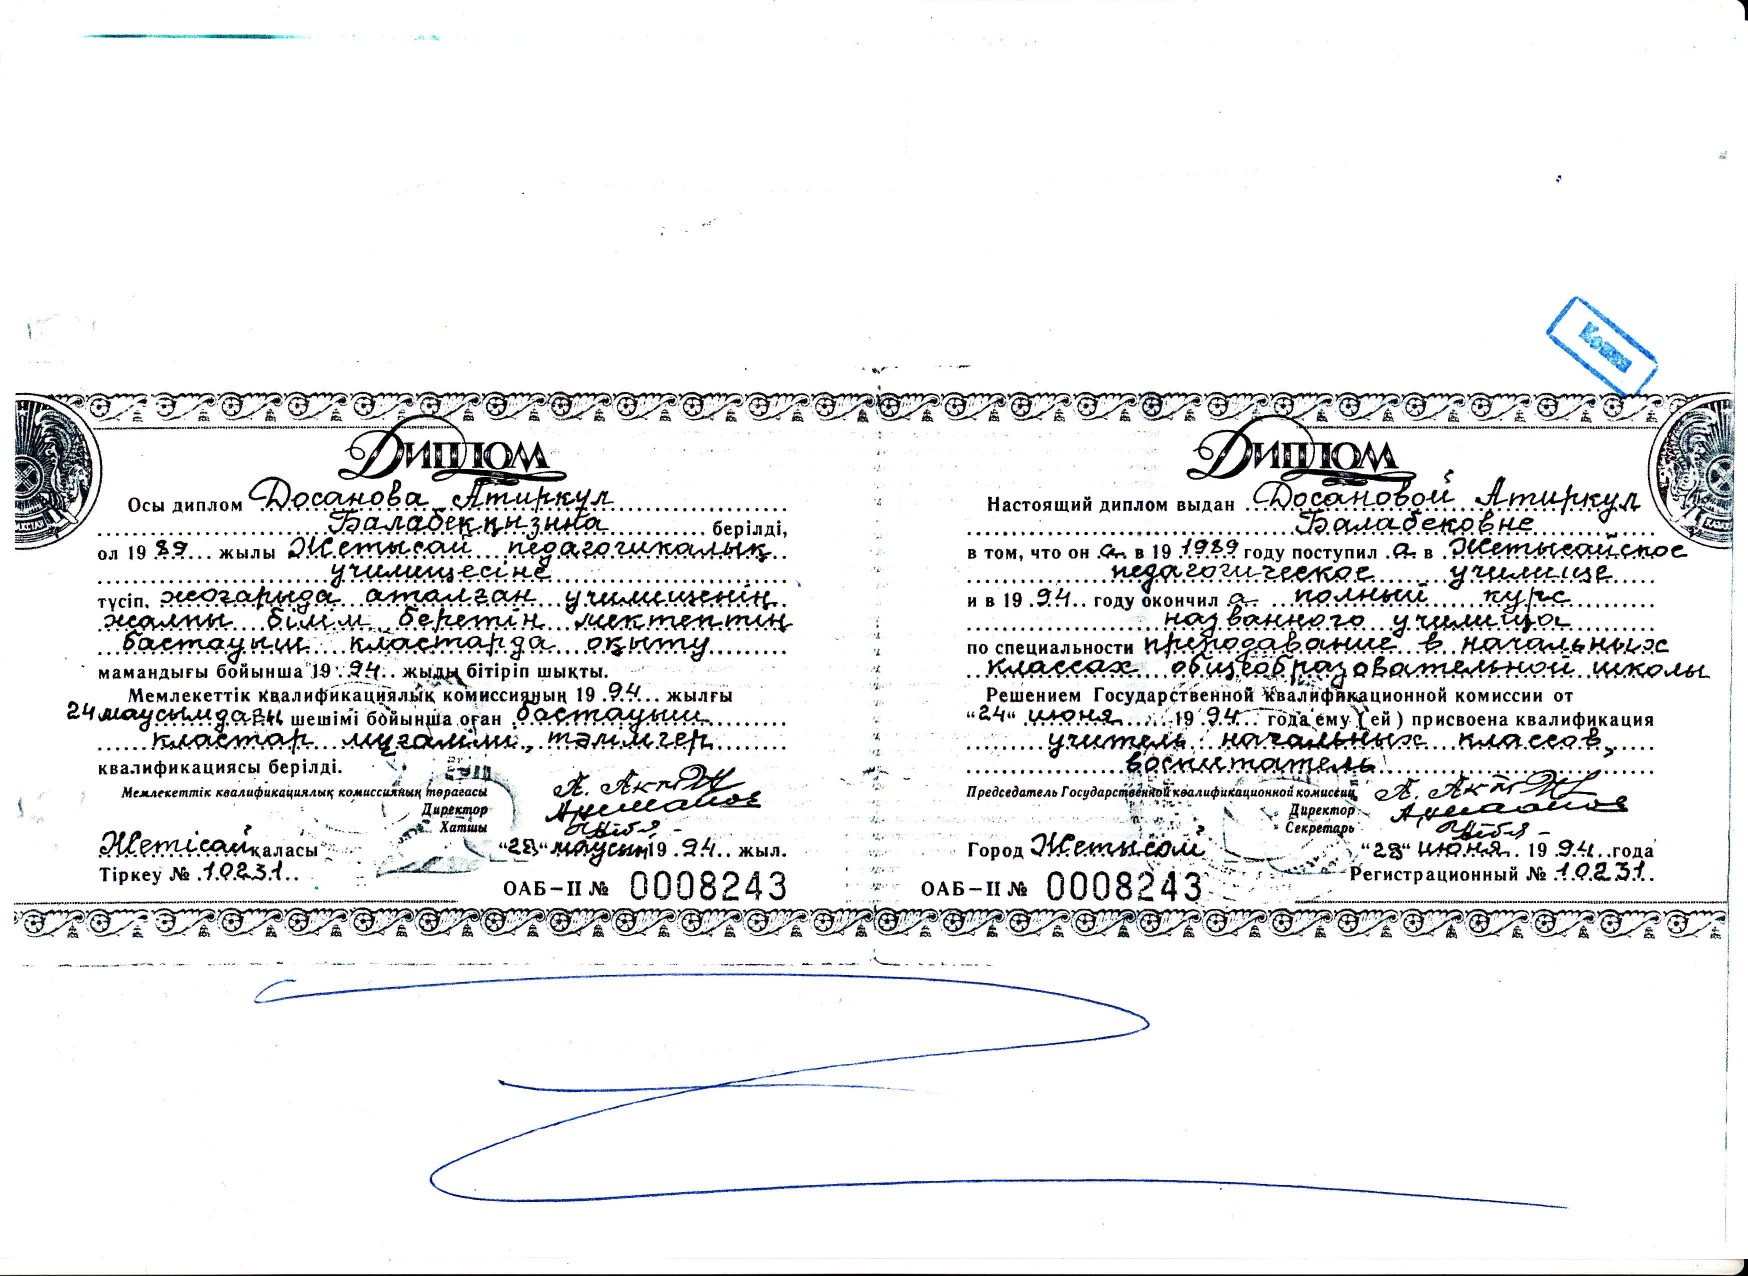 Копия
Диплом
Осы диплом Досанова Атиркул
Балабекқизина берілді,
ол 19 89 жылы Жетысай педагогикалық
училищесіне
түсіп, жоғарыда аталған училищенің
жалпы білім беретін мектептің
бастауыш кластарда оқыту
мамандығы бойынша 19 94 жылы бітіріп шықты.
Мемлекеттік квалификациялық комиссияның 19 94 жылғы
24 маусымдағы шешімі бойынша оған бастауыш
кластар мұғалімі, тәлімгер
квалификациясы берілді.
Мемлекеттік квалификациялық комиссияның төрағасы
Директор
Хатшы
Жетісай қаласы "28" маусым 19 94 жыл.
Тіркеу № 10231
ОАБ-II № 0008243
Диплом
Настоящий диплом выдан Досановой Атиркул
Балабековне
в том, что он а в 19 1989 году поступил а в Жетысайское
педагогическое училище
и в 19 94 году окончил а полный курс
названного училища
по специальности преподавание в начальных
классах общеобразовательной школы
Решением Государственной квалификационной комиссии от
"24" июня 19 94 года ему (ей) присвоена квалификация
учитель начальных классов,
воспитатель
Председатель Государственной квалификационной комиссии
Директор
Секретарь
Город Жетысай "28" июня 19 94 года
Регистрационный № 10231
ОАБ-II № 0008243